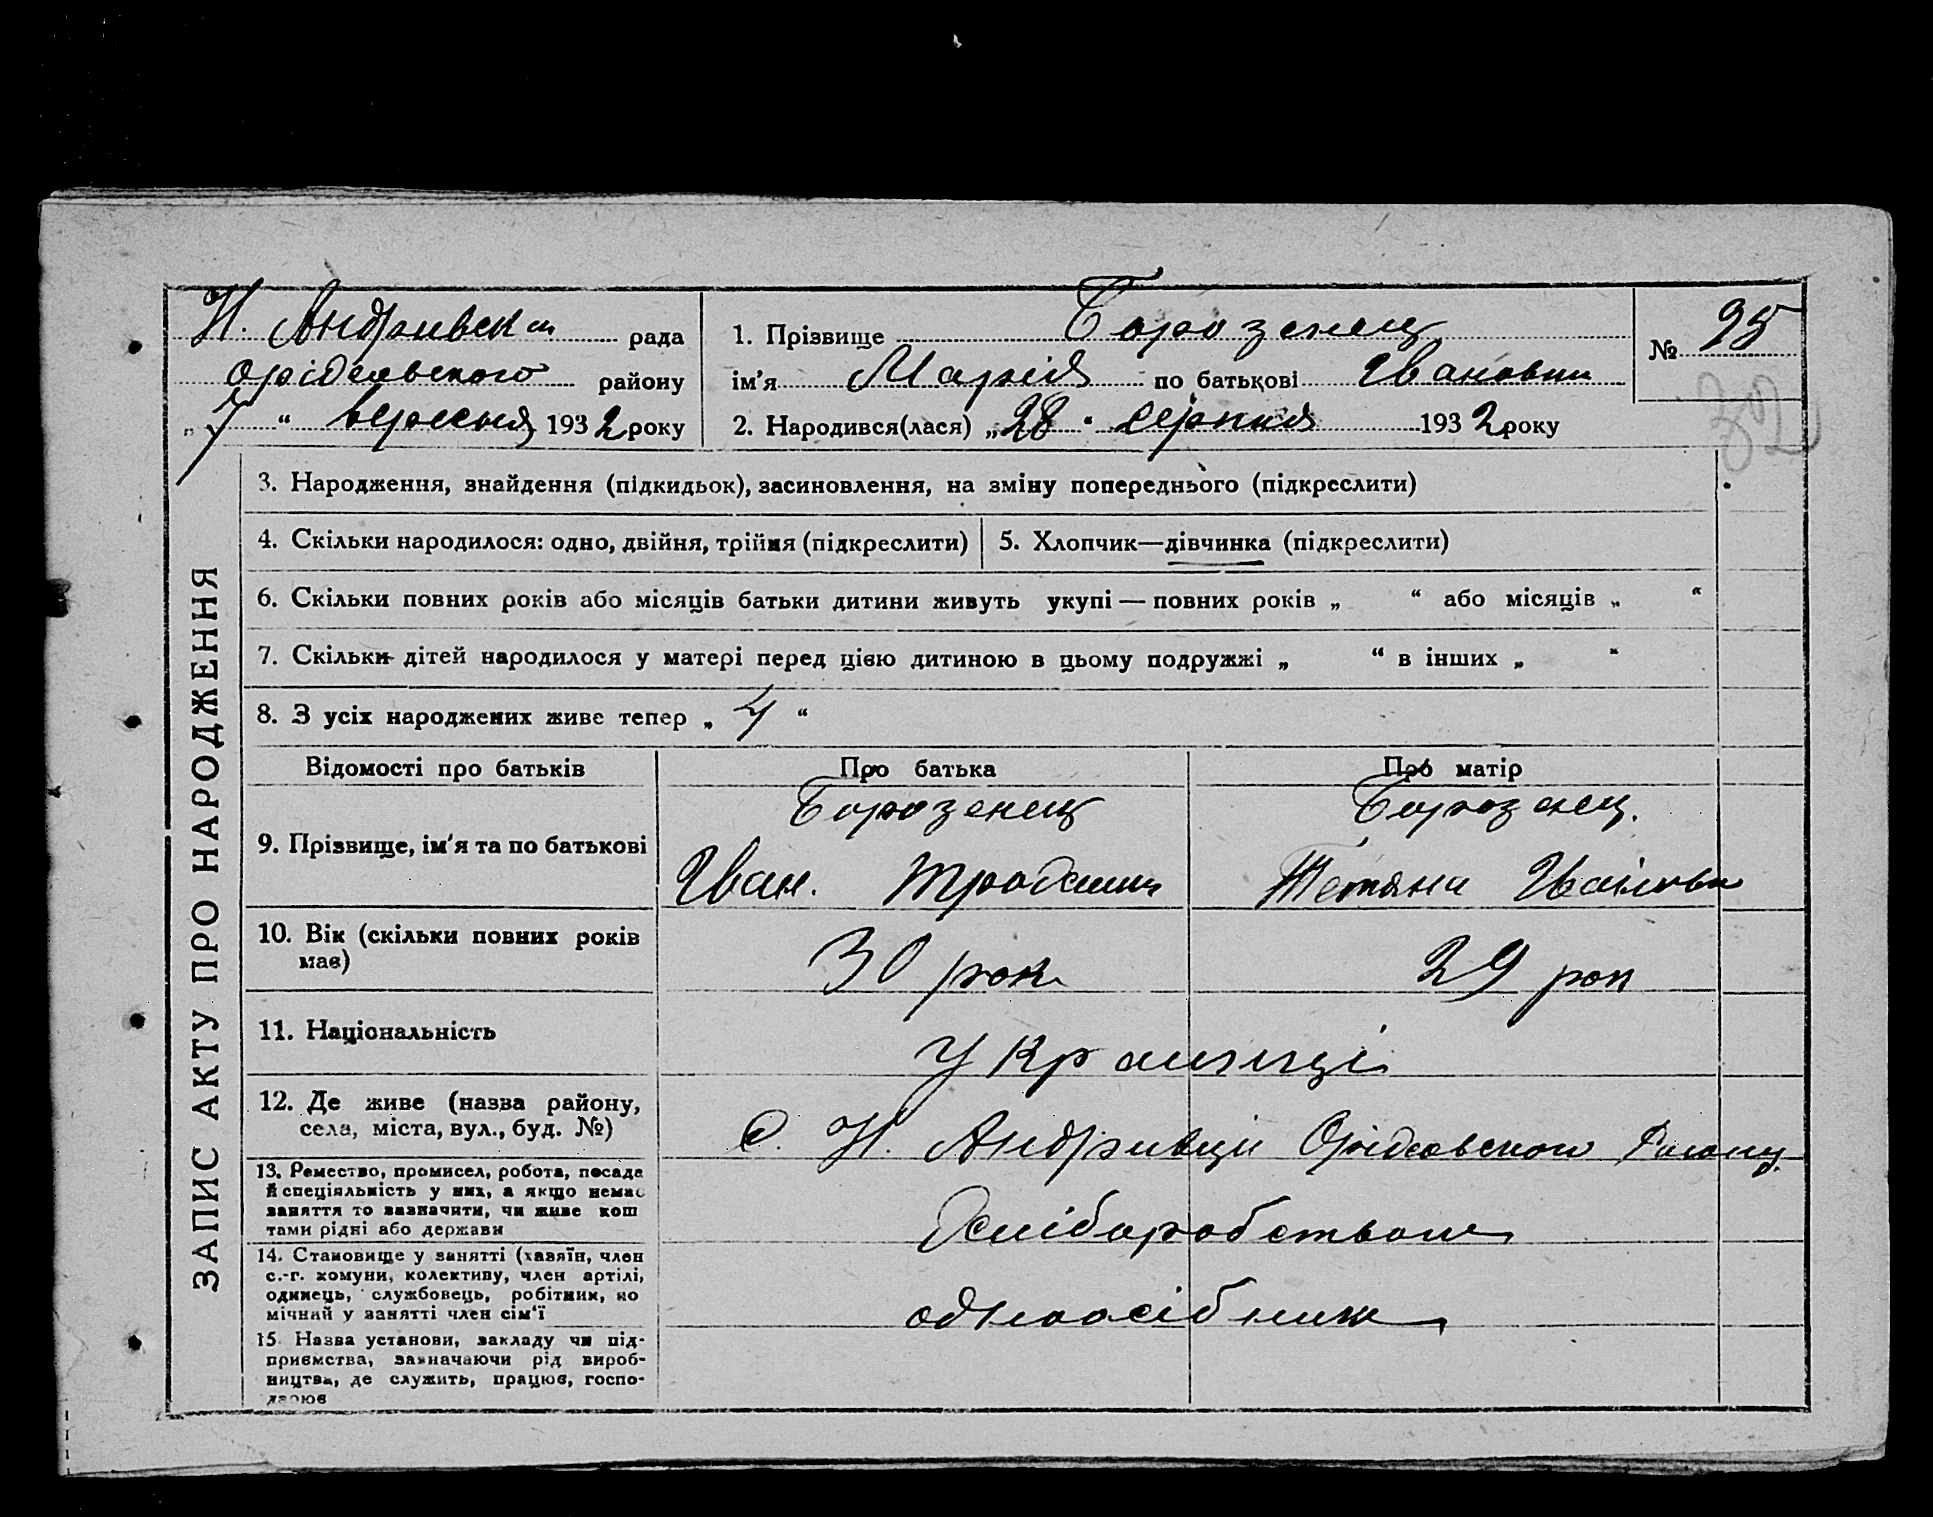 Н. Андривск рада
Орідсовського району
„7“ вересня 1932 року
1. Прізвище Борозенец
ім'я Марія по батькові Ивановна
2. Народився(лася) „28“ серпня 1932 року
№ 95
32
ЗАПИС АКТУ ПРО НАРОДЖЕННЯ
3. Народження, знайдення (підкидьок), засиновлення, на зміну попереднього (підкреслити)
4. Скільки народилося: одно, двійня, трійня (підкреслити)
5. Хлопчик—дівчинка (підкреслити)
6. Скільки повних років або місяців батьки дитини живуть укупі — повних років „ “ або місяців „ “
7. Скільки дітей народилося у матері перед цією дитиною в цьому подружжі „ “ в інших „ “
8. З усіх народжених живе тепер „4“
Відомості про батьків Про батька Про матір
9. Прізвище, ім'я та по батькові
Борозенец
Иван.
Борозенец.
Тетяна
10. Вік (скільки повних років
має)
30 рок
29 рок
11. Національність
Украинці
12. Де живе (назва району,
села, міста, вул., буд. №)
С. Н. Андривци Району
13. Ремество, промисел, робота, посада
й спеціяльність у них, а якщо немає
заняття то зазначити, чи живе кош
тами рідні або держави
14. Становище у занятті (хазяїн, член
с.-г. комуни, колективу, член артілі,
одинець, службовець, робітник, по
мічний у занятті член сім'ї
одноосібник
15. Назва установи, закладу чи під-
приємства, зазначаючи рід вироб-
ництва, де служить, працює, госпо-
дарює